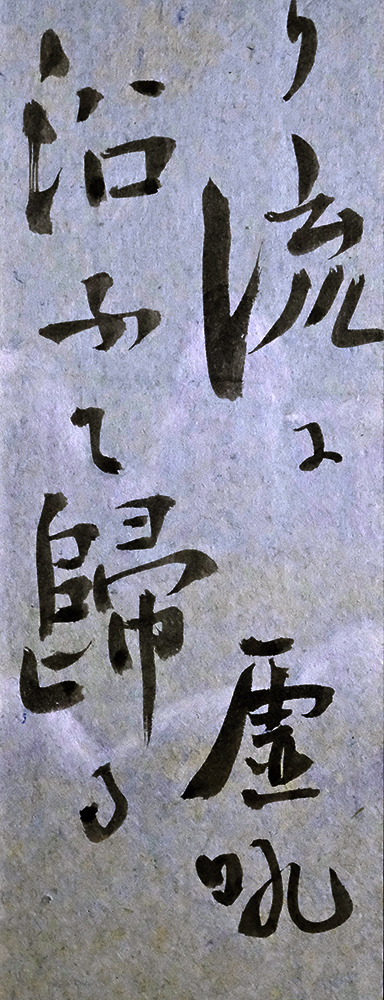 り流に虚吼
沿ふて歸る